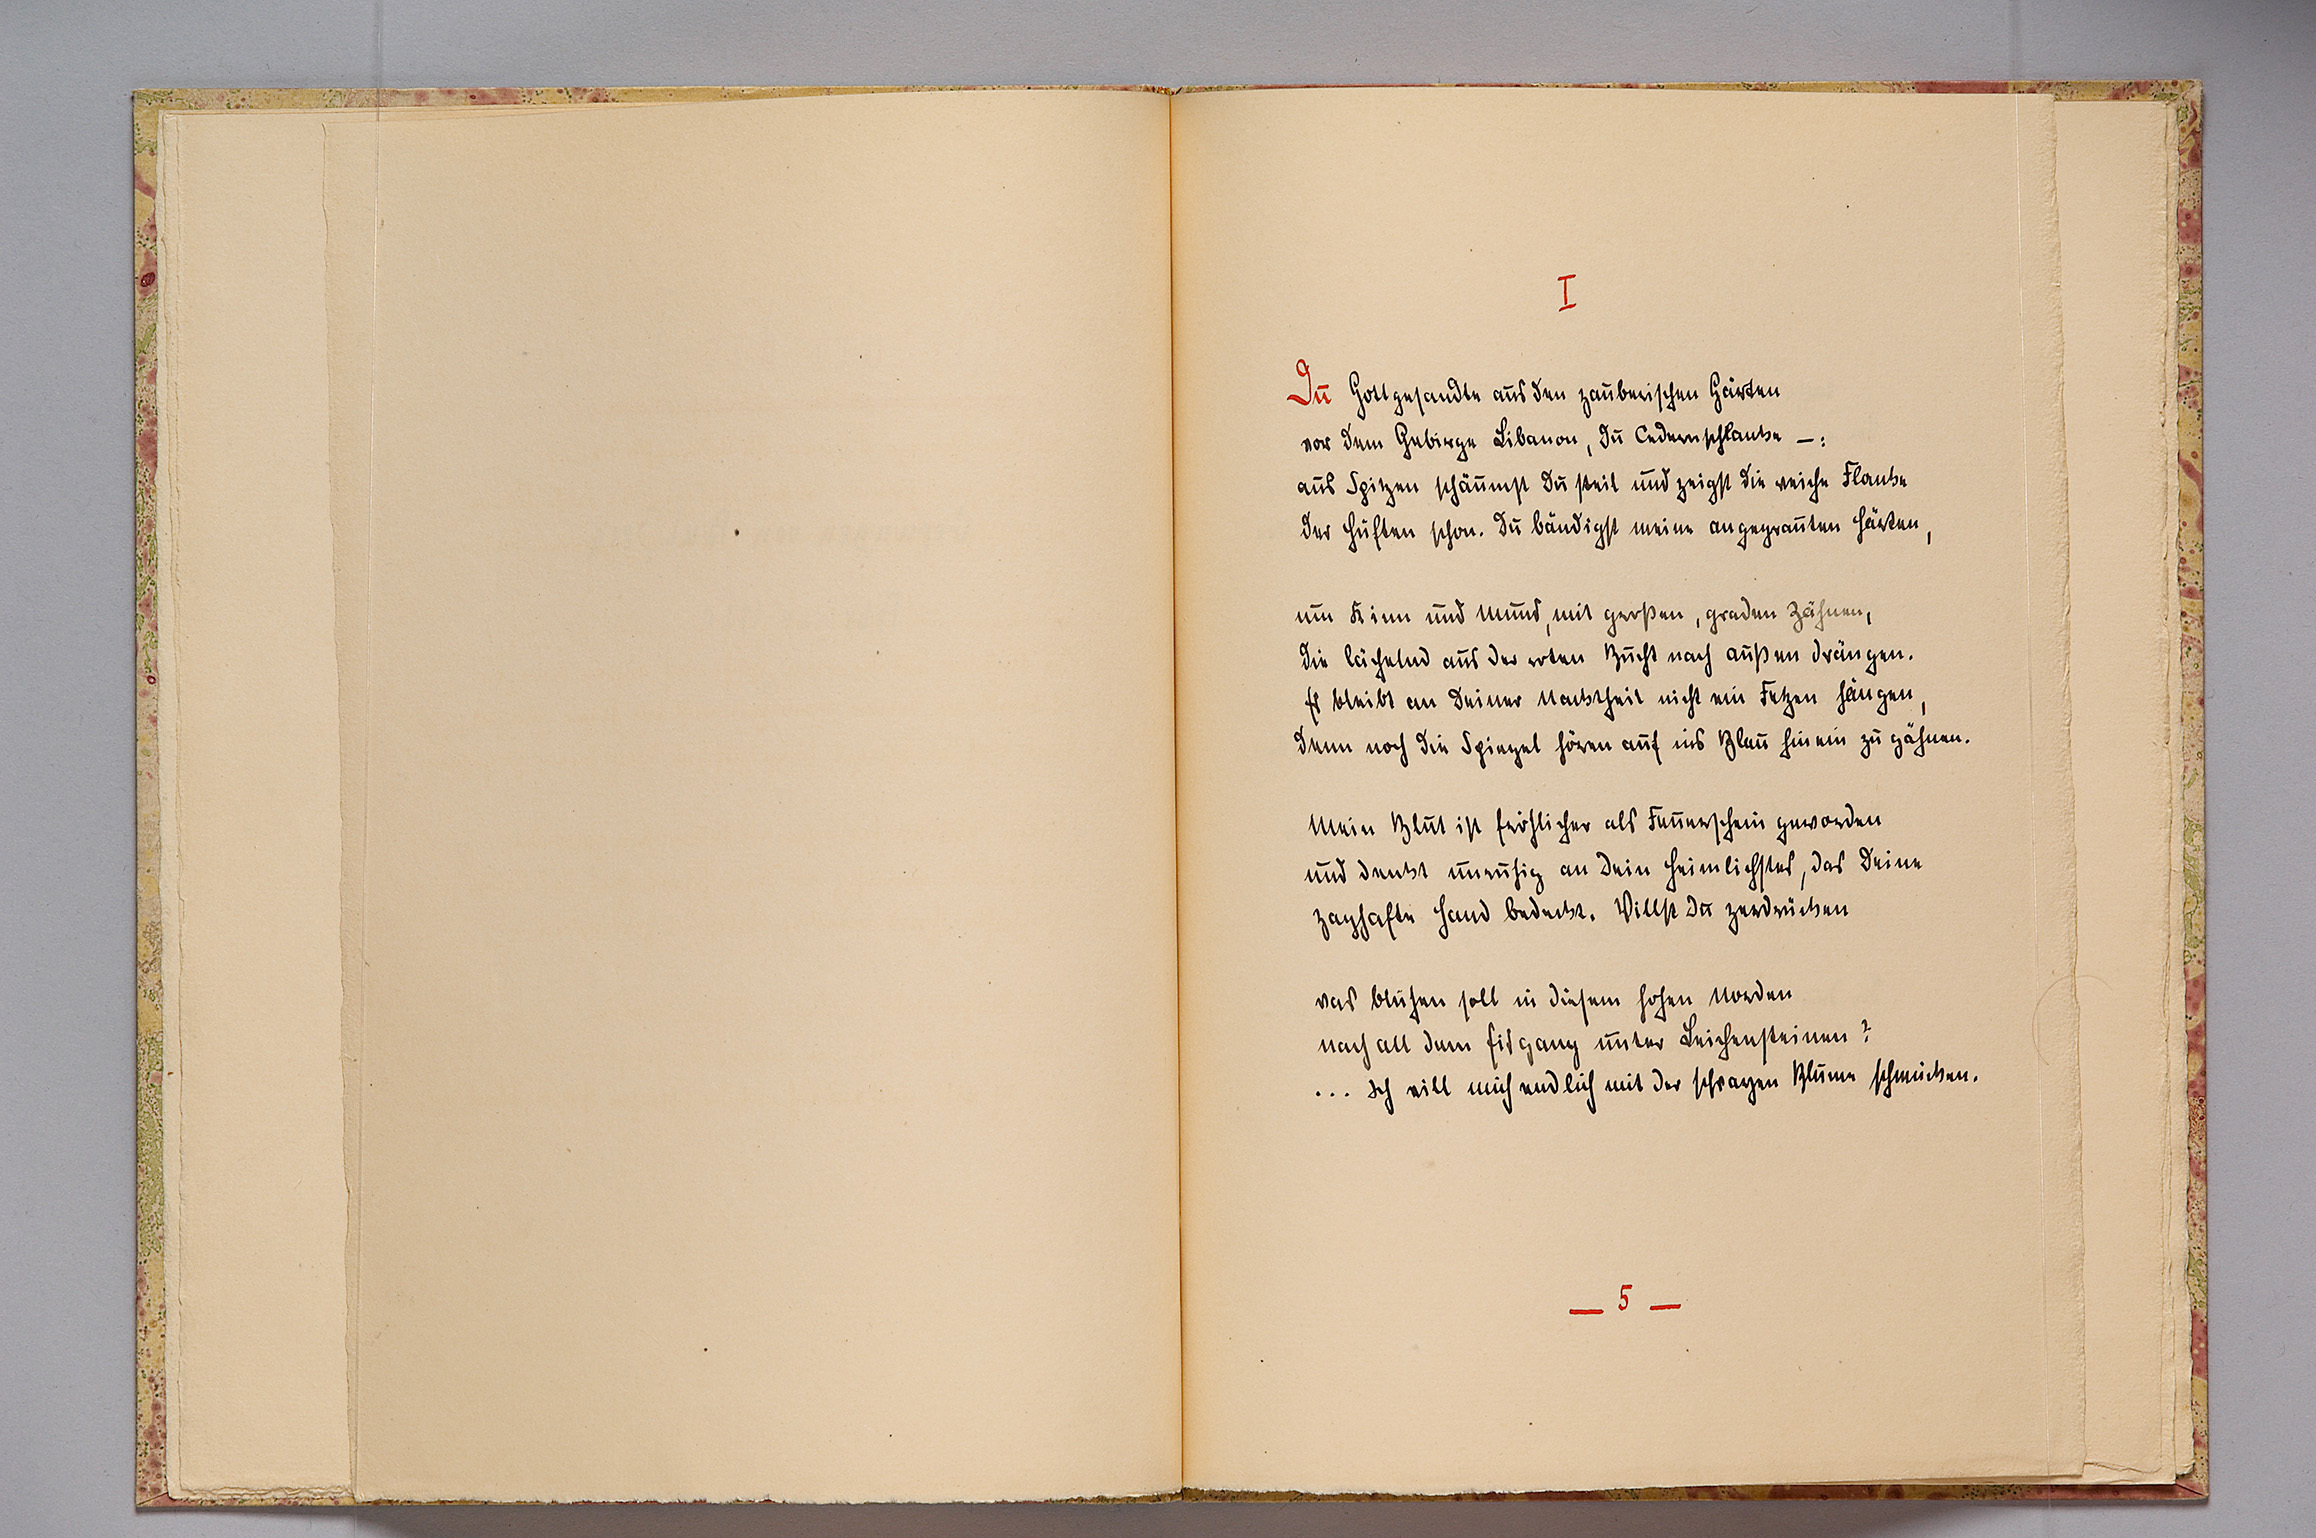 I
Du Gottgesandte aus den zauberischen Gärten
vor dem Gebirge Libanon, Du Cedernschlanke –:
aus Spitzen schäumst Du steil und zeigst die weiche Flanke
der Hüften schon. Du bändigst meine angegrauten Härten,
um Kinn und Mund, mit großen, graden Zähnen,
die lächelnd aus der roten Bucht nach außen drängen.
Es bleibt an Deiner Nacktheit nicht ein Fetzen hängen,
denn noch die Spiegel hören auf ins Blau hinein zu gähnen.
Mein Blut ist fröhlicher als Feuerschein geworden
und denkt unruhig an Dein Heimlichstes, das Deine
zaghafte Hand bedeckt. Willst Du zerdrücken
was blühen soll in diesem hohen Norden
nach all dem Eisgang unter Leichensteinen?
... Ich will mich endlich mit der schwarzen Blume schmücken.
— 5 —